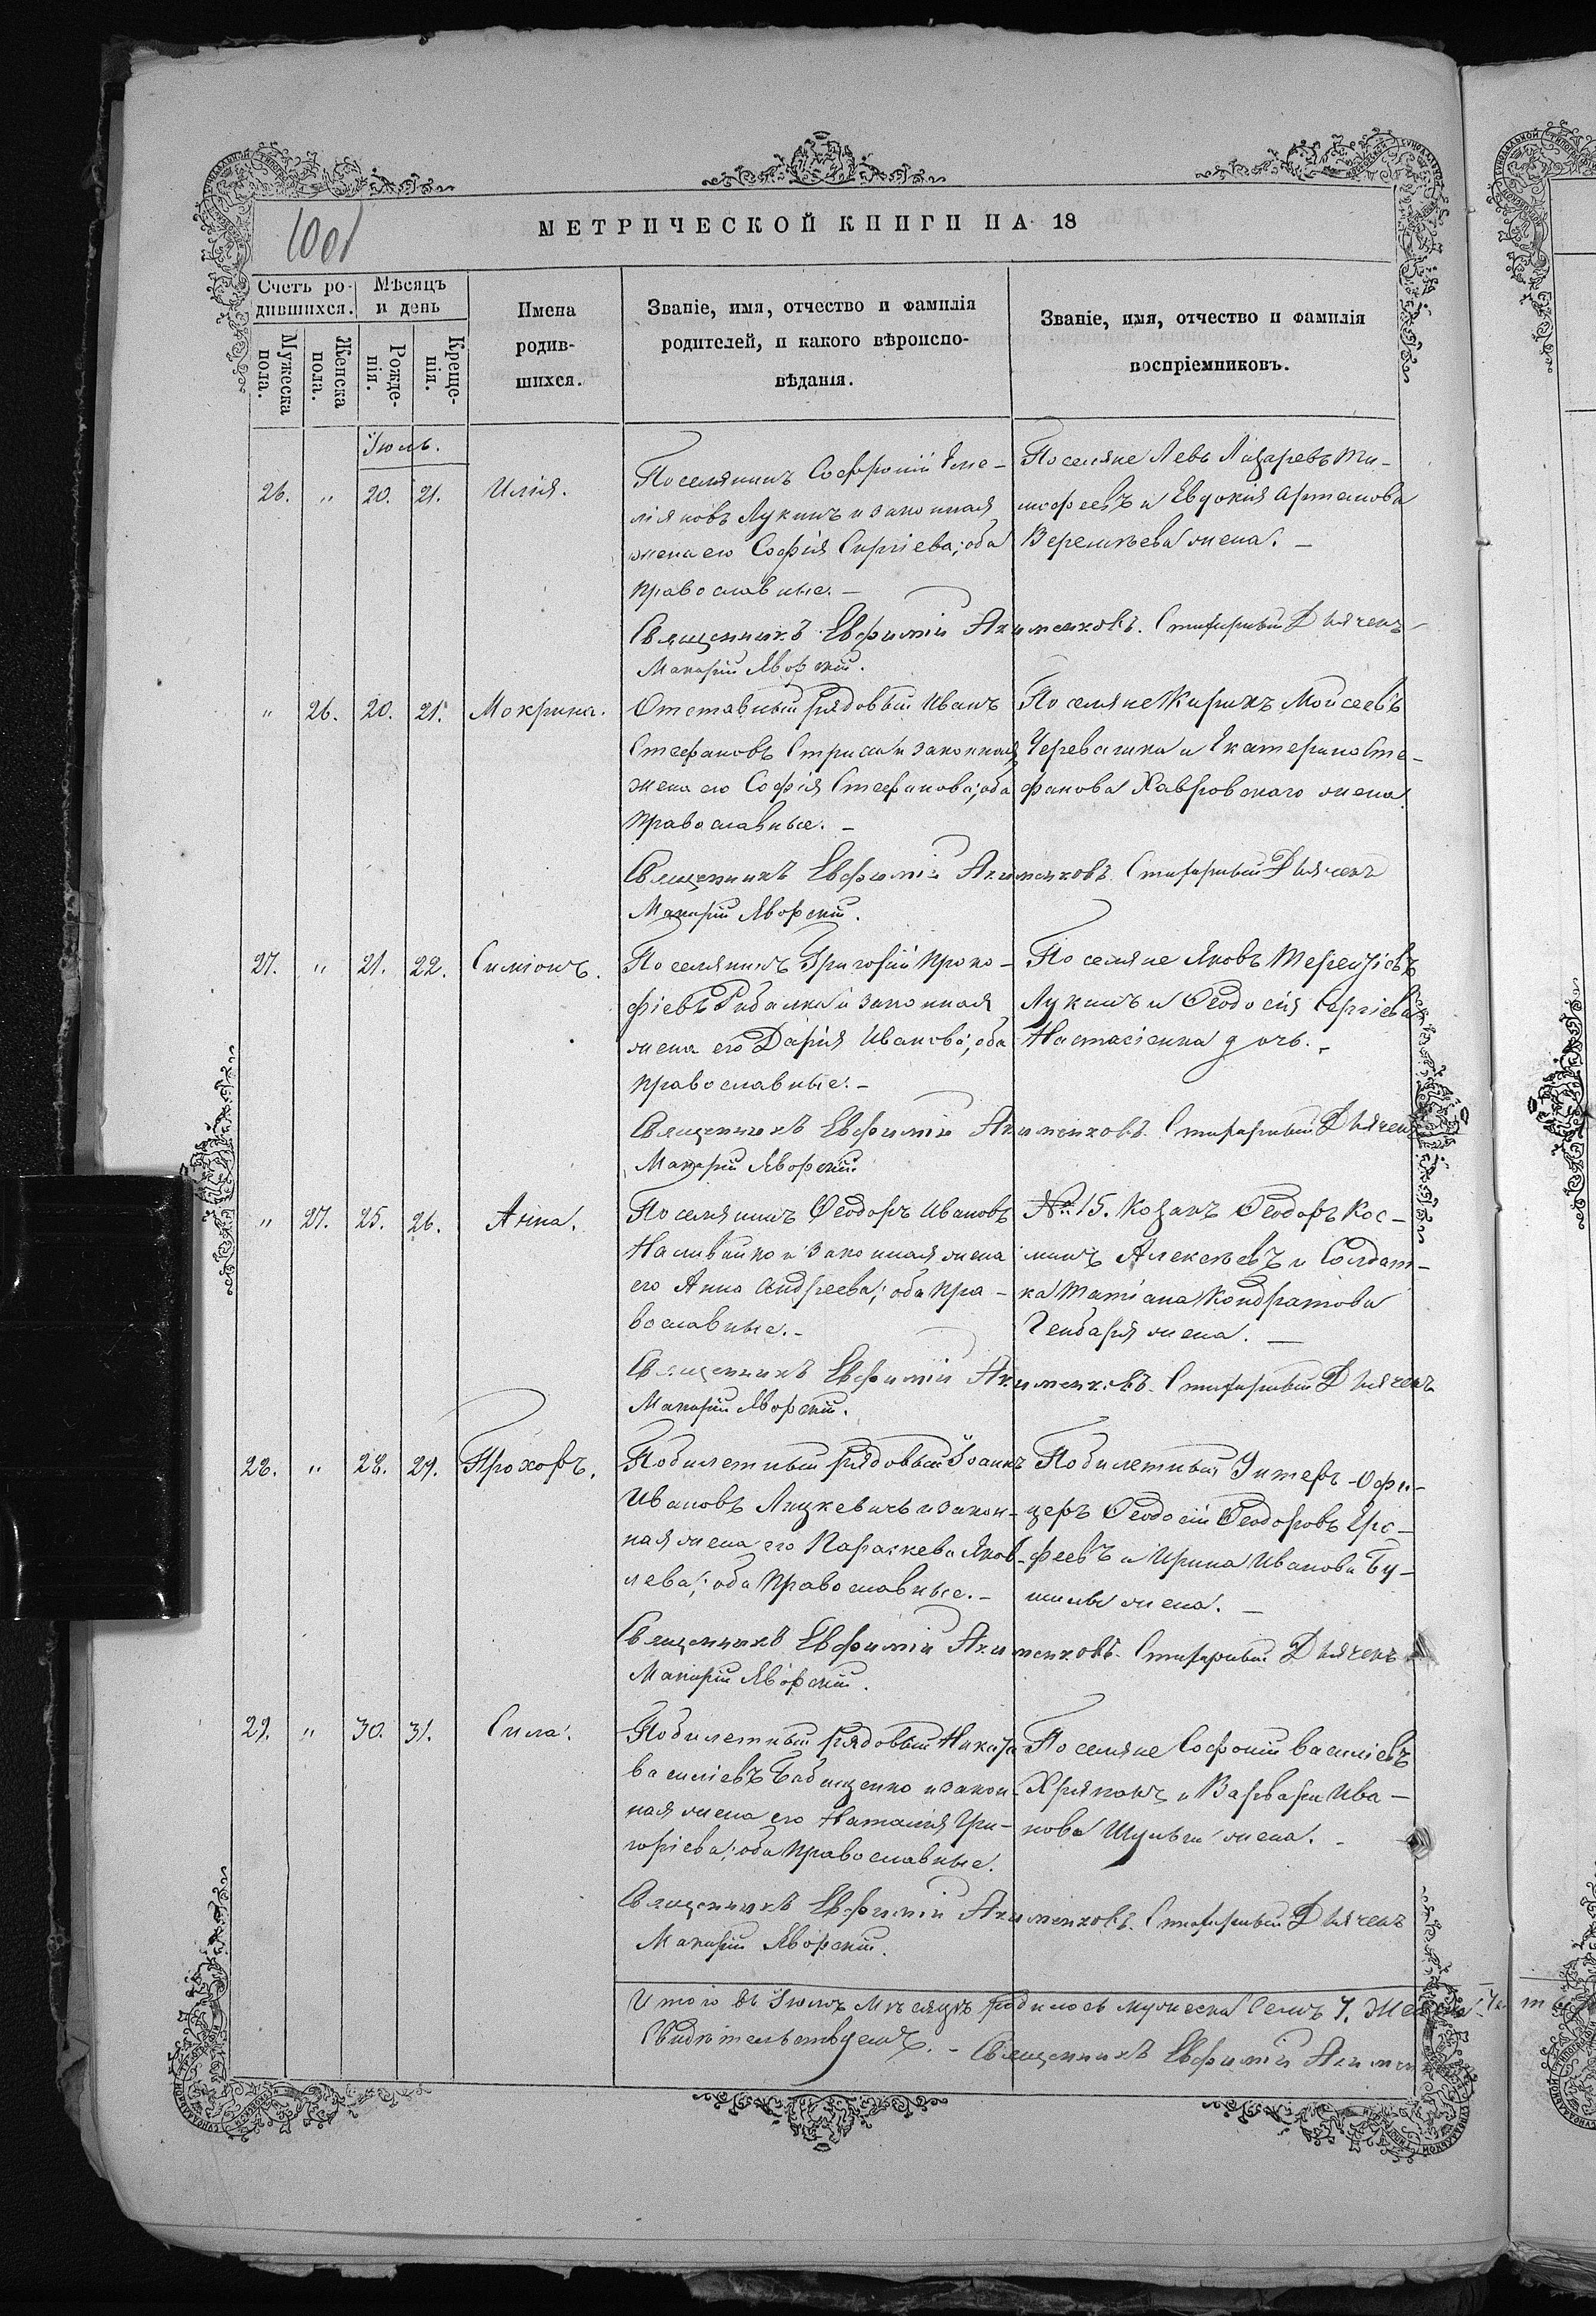 МЕТРИЧЕСКОЙ КНИГИ НА 18
Счетъ ро-
дившихся.
Мѣсяцъ
и день
Имена
родив-
шихся.
Званіе, имя, отчество и фамилія
родителей, и какого вѣроиспо-
вѣданія.
Званіе, имя, отчество и фамилія
воспріемниковъ.
Мужеска
пола.
Женска
пола.
Рожде-
нія.
Креще-
нія.
Іюль.
26. " 20. 21. Илія.
Поселянинъ Софроній Еме-
ліяновъ Лукинъ и законная
жена его Софія Сергіева; оба
православные. –
Поселяне Левъ Лазаревъ Ти-
мофеевъ и Евдокія Артемова
жена. –
Священникъ Евфимій Акименковъ. Стихарный Дьячекъ
Макарій Яворскій.
" 26. 20. 21. Мокрина.
Отставный рядовый Иванъ
Стефановъ и законная
жена его Софія Стефанова; оба
православные. –
Поселяне Кирикъ Мойсеевъ
Черевашка и Екатерина Сте-
фанова Хавровскаго жена.
Священникъ Евфимій Акименковъ. Стихарный Дьячекъ
Макарій Яворскій.
27. " 21. 22. Симіонъ.
Поселянинъ Григорій Проко-
фіевъ Рибалка и законная
жена его Дарія Иванова; оба
православные. –
Поселяне Яковъ Терентіевъ
Лукинъ и Ѳеодосія Сергіева
Настасіенка дочь. –
Священникъ Евфимій Акименковъ. Стихарный Дьячекъ
Макарій Яворскій.
" 27. 25. 26. Анна.
Поселянинъ Ѳеодоръ Ивановъ
Наливайко и законная жена
его Анна Андреева; оба пра-
вославные. –
№ 15. Ѳеодоръ Кос-
минъ Алексѣевъ и Солдат-
ка Татіана Кондратова
жена. –
Священникъ Евфимій Акименковъ. Стихарный Дьячекъ
Макарій Яворскій.
28. " 28. 29. Прохоръ.
Побилетный рядовый Іоаннъ
Ивановъ Яцкевичъ и закон-
ная жена его Параскева Яков-
лева; оба православные. –
Побилетный Унтеръ-Офи-
церъ Ѳеодосій Ѳеодоровъ Еро-
феевъ и Ирина Иванова Бу-
жена. –
Священникъ Евфимій Акименковъ. Стихарный Дьячекъ
Макарій Яворскій.
29. " 30. 31. Сила.
Побилетный рядовый
Василіевъ Бабищенко и закон-
ная жена его Наталія Гри-
горіева; оба православные.
Поселяне Софоній Василіевъ
и Варвара Ива-
нова Шульги жена. –
Священникъ Евфимій Акименковъ. Стихарный Дьячекъ
Макарій Яворскій.
Итого въ Іюлѣ мѣсяцѣ родилось мужеска семь 7.
Свидѣтельствуемъ. – Священникъ Евфимій